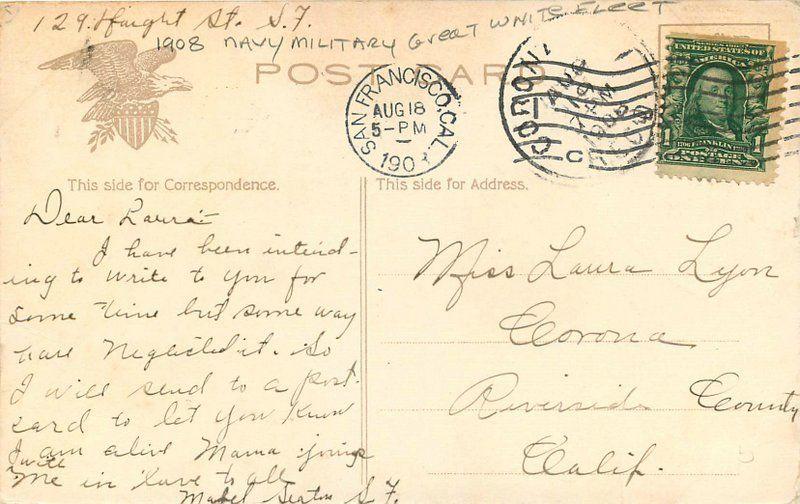 129 Haight St. S.F.
1908 NAVY MILITARY Great WHITE FLEET
POST CARD
SAN FRANCISCO, CAL.
AUG 18
5-PM
190
CORON
C
UNITED STATES OF
AMERICA
1 FRANKLIN 1
POSTAGE
ONE CENT
This side for Correspondence.
This side for Address.
Dear Laura:-
I have been intend-
ing to write to you for
some time but some way
have neglected it. So
I will send to a post-
card to let you know
I am alive Mama joins
with
me in love to all
Mabel S.F.
Miss Laura Lyon
Corona
Riverside County
Calif.